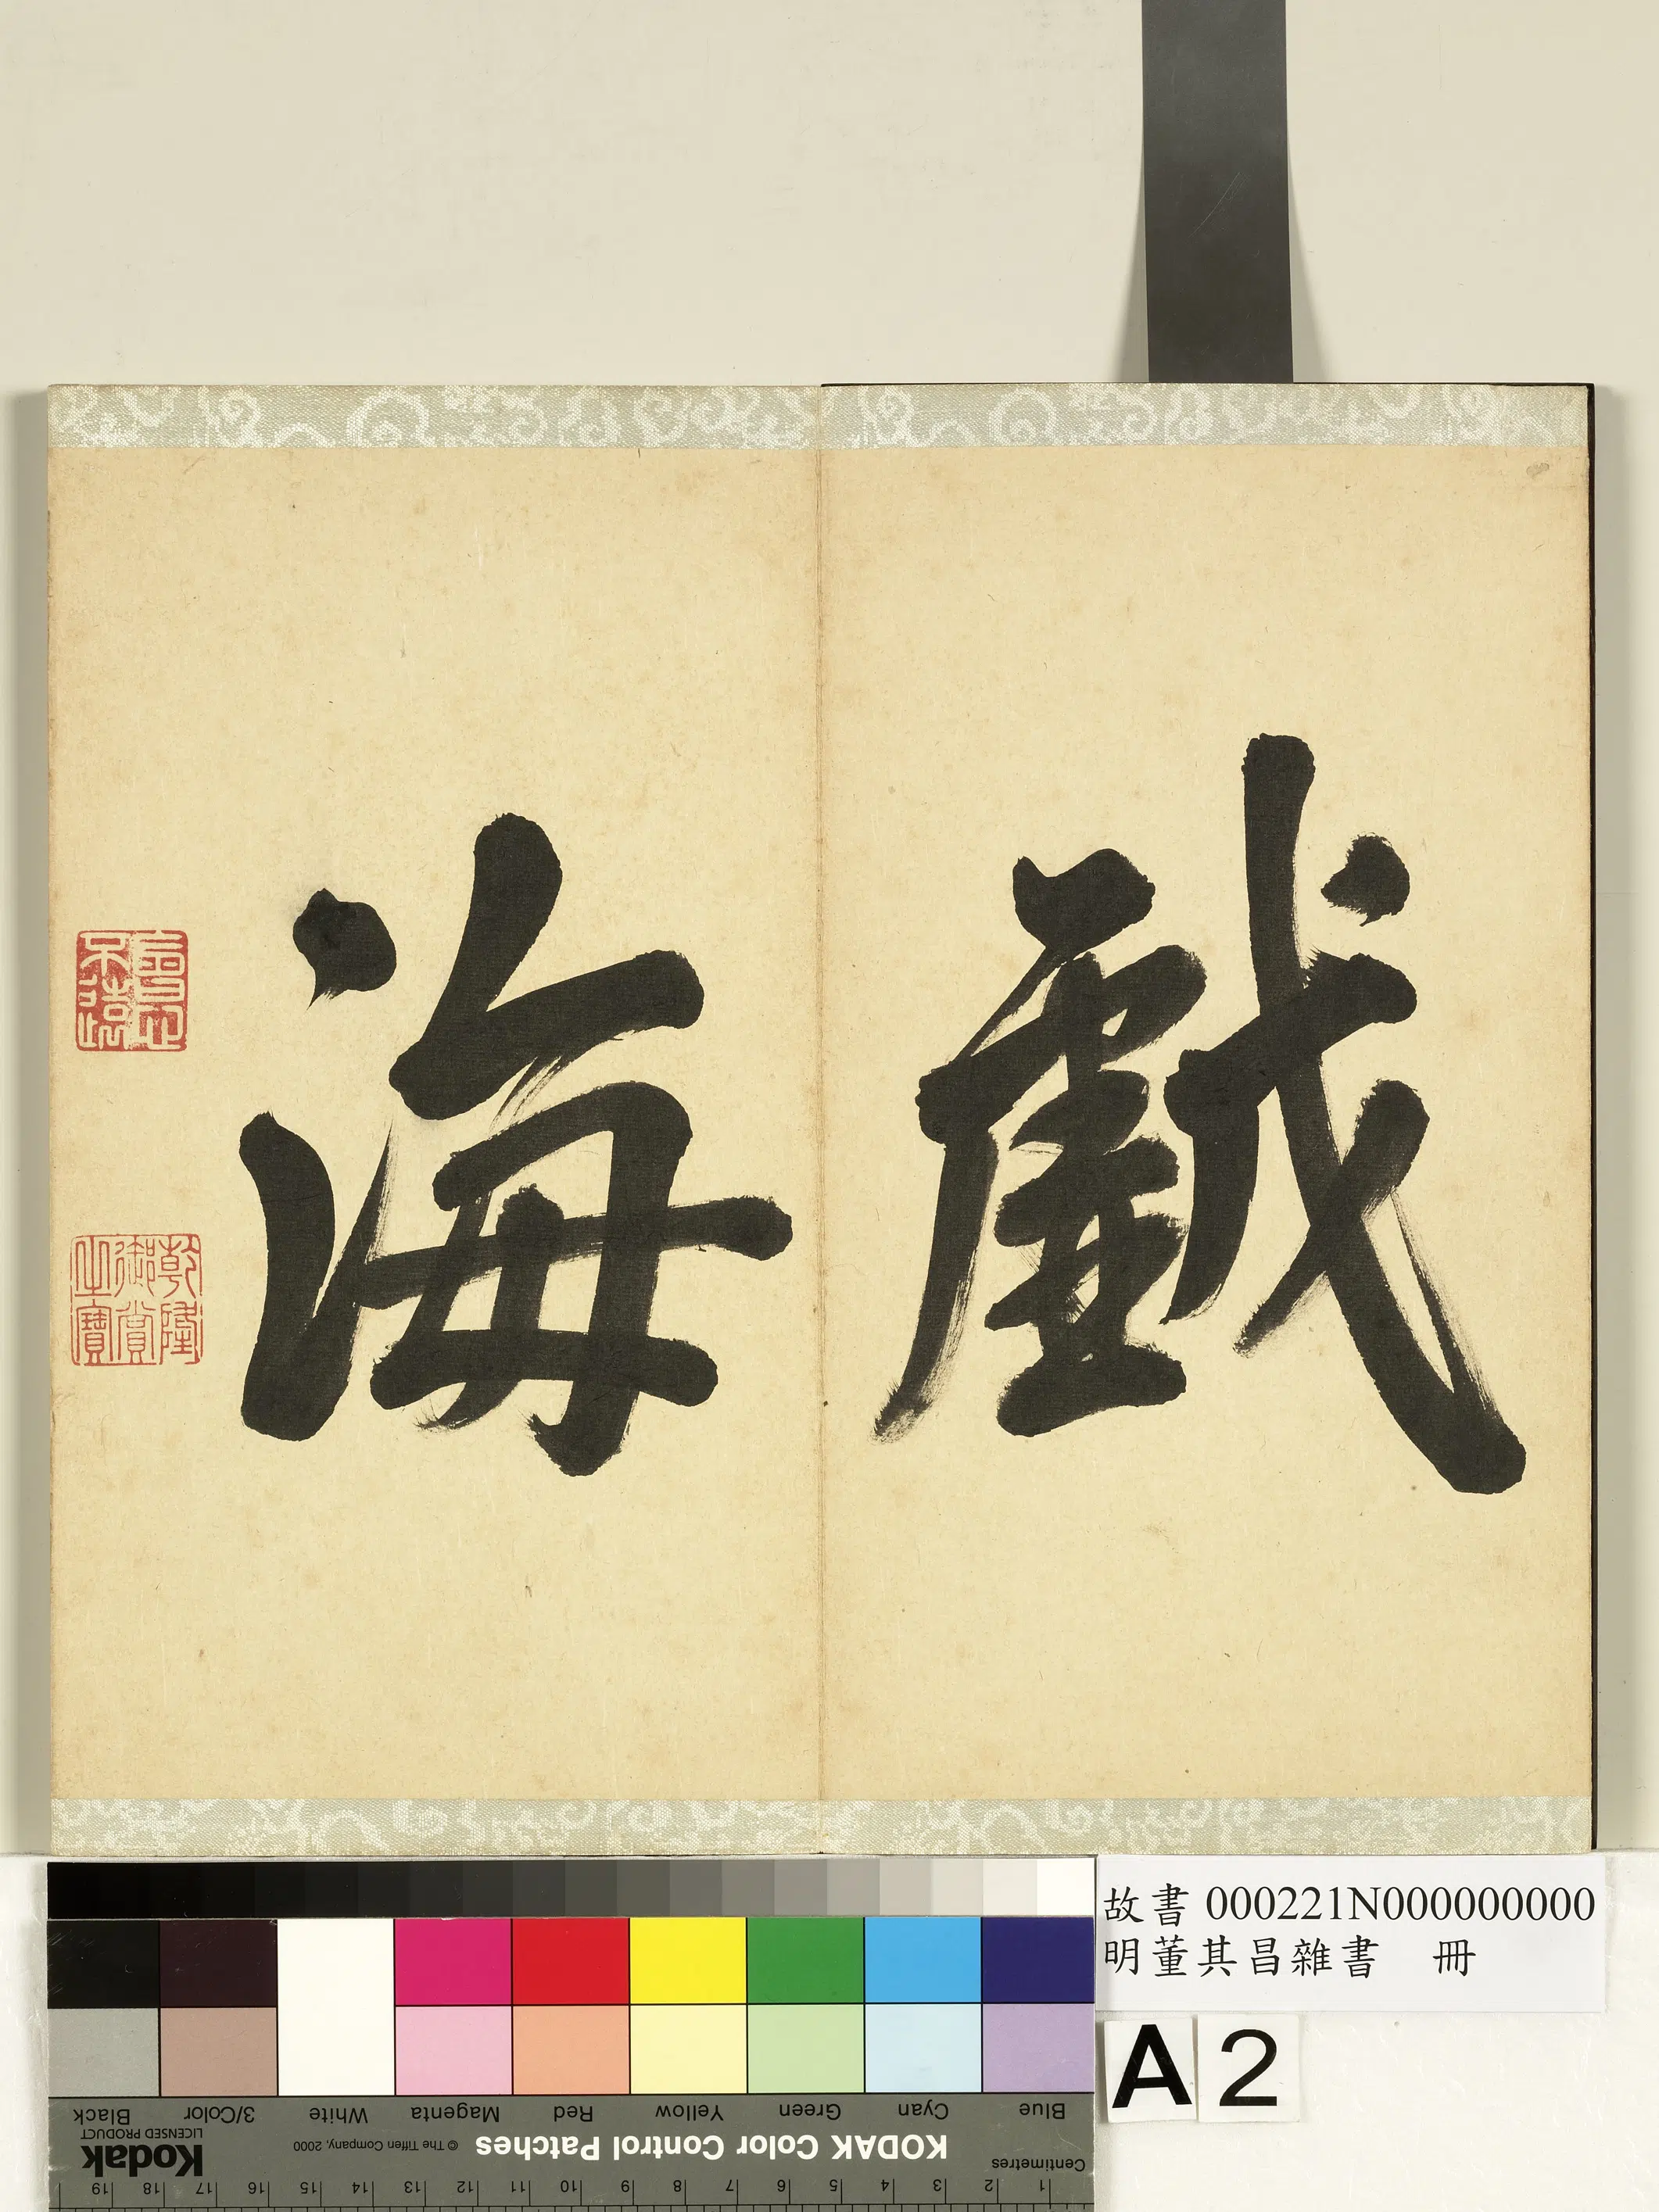 戲
海
乾隆
御賞
之寶
故書 000221N000000000
明董其昌雜書 冊
A 2
Blue Cyan Green Yellow Red Magenta White 3/Color Black
KODAK Color Control Patches © The Tiffen Company, 2000 Kodak
LICENSED PRODUCT
Centimetres
1 2 3 4 5 6 7 8 9 10 11 12 13 14 15 16 17 18 19